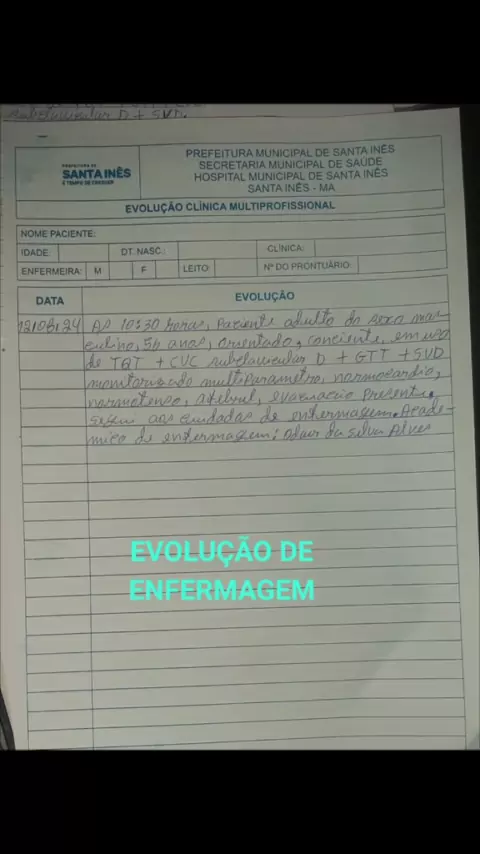 subclavicular D + SVD.
PREFEITURA DE
SANTA INÊS
É TEMPO DE CRESCER
PREFEITURA MUNICIPAL DE SANTA INÊS
SECRETARIA MUNICIPAL DE SAÚDE
HOSPITAL MUNICIPAL DE SANTA INÊS
SANTA INÊS - MA
EVOLUÇÃO CLÍNICA MULTIPROFISSIONAL
NOME PACIENTE:
IDADE: DT. NASC.: CLÍNICA:
ENFERMEIRA: M F LEITO: Nº DO PRONTUÁRIO:
DATA EVOLUÇÃO
12/08/24 As 10:30 horas, Paciente adulto do sexo mas
culino, 54 anos, orientado, conciente, em uso
de TQT + CVC subclavicular D + GTT + SVD
monitorizado multiparametro, normocardio,
normotenso, afebril, evacuação presente.
Segue aos cuidados de enfermagem. Acade-
mico de enfermagem: da Silva Alves
EVOLUÇÃO DE
ENFERMAGEM